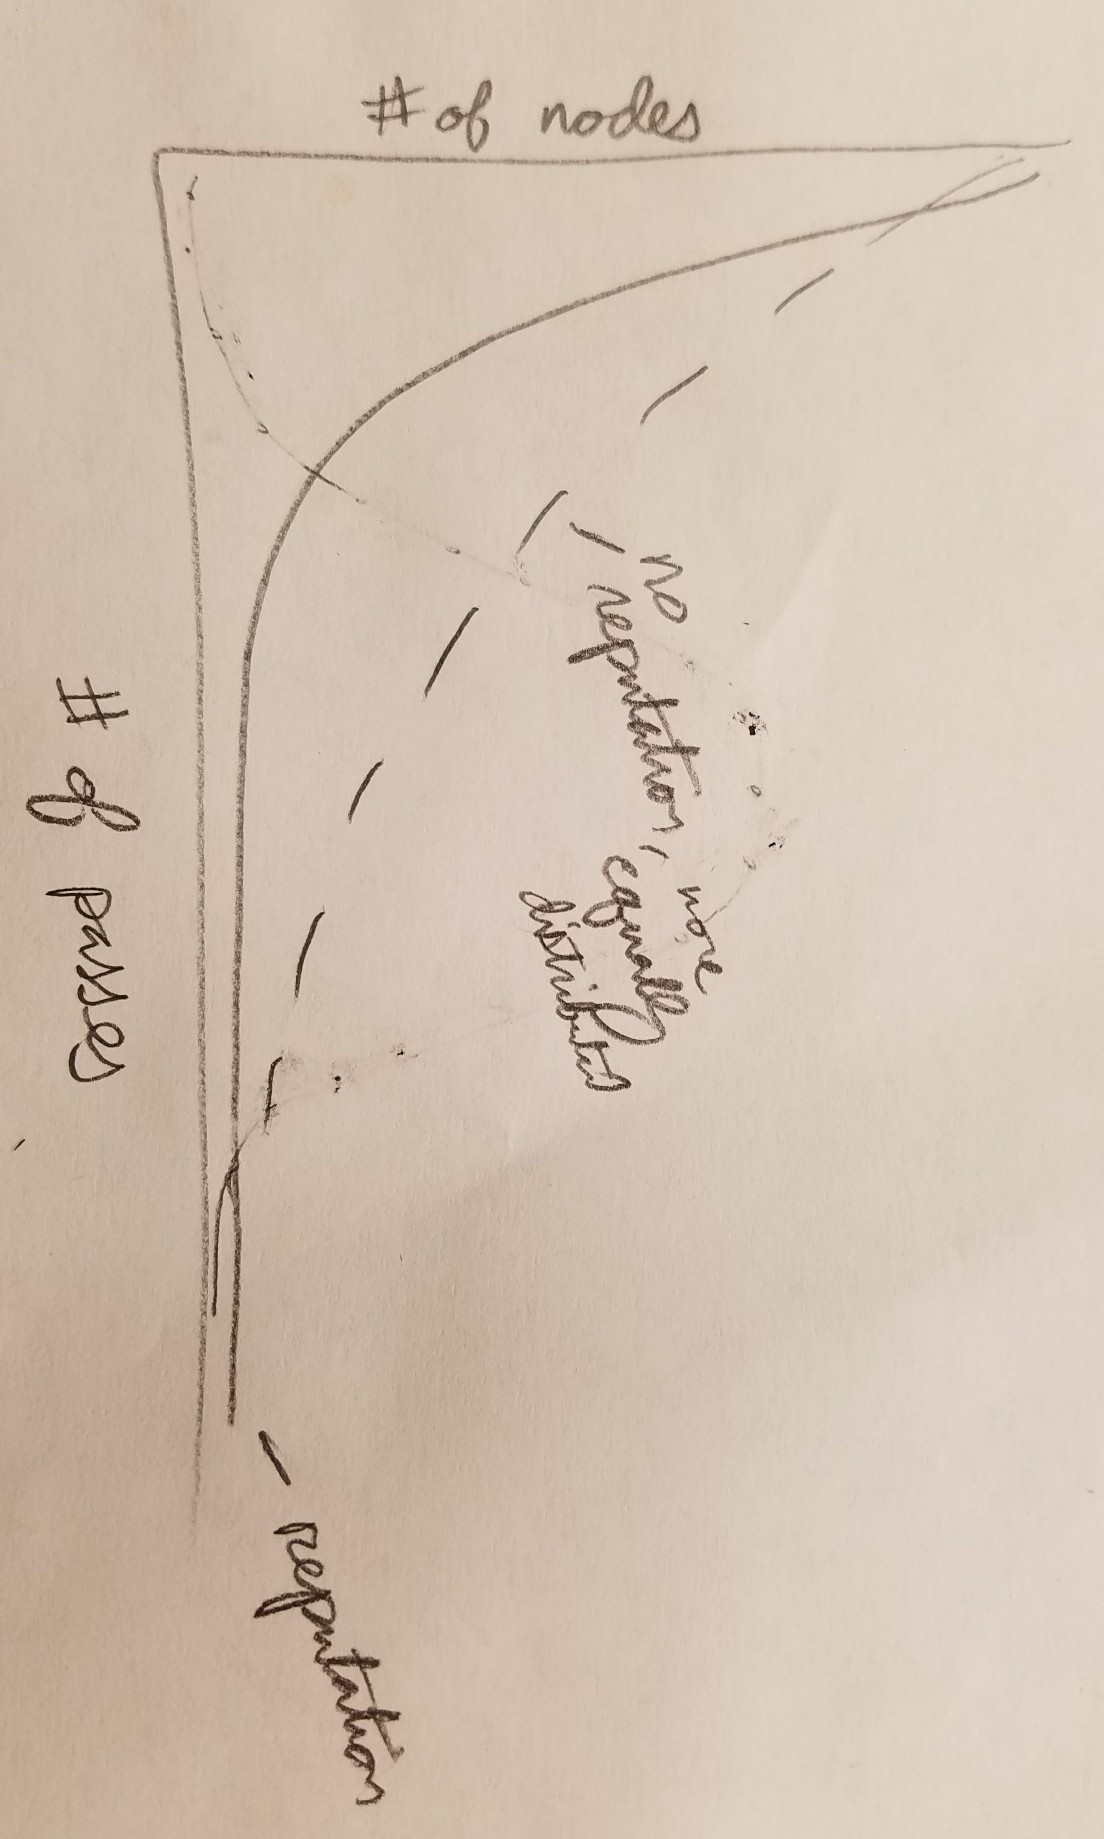 # of nodes
no
reputation, more
equally
distributed
reputation
# of passes